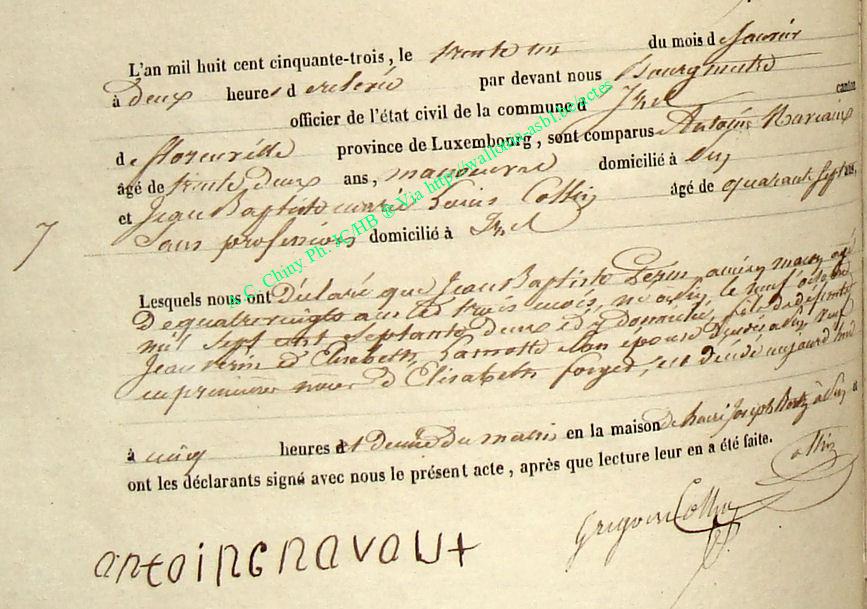 L'an mil huit cent cinquante-trois, le trente un du mois de Janvier
à deux heures d e relevée par devant nous Bourgmestre
officier de l'état civil de la commune d' Izel canton
de florenville province de Luxembourg, sont comparus Antoine
âgé de trente deux ans, manoeuvre domicilié à
et Jean Baptiste marie Louis Collin âgé de quarante sept ans,
Sans profession domicilié à Izel
7
Lesquels nous ont Déclaré que Jean Baptiste ancien maçon agé
De quatre vingts ans et trois mois, né le neuf octobre
mil sept cent septante Deux et y Domicilié, fils de défunts
Jean et Elisabeth Lamotte Son épouse veuf
en premieres noces d'Elisabeth forget, est décédé aujourd'hui
à cinq heures et demie du matin en la maison de henri Joseph à
ont les déclarants signé avec nous le présent acte, après que lecture leur en a été faite.
Collin
Grégoire Collin
antoine
© C. Chiny Ph. JC/HB @ Via http://wallonia-asbl.be/actes